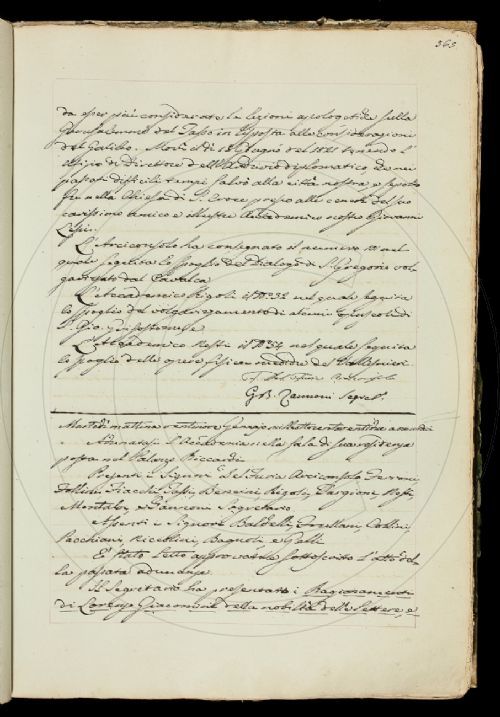 363
da esser più considerato la lezione apologetica sulla
Gerusalemme del Tasso in risposta alle Considerazioni
del Galileo. Morì el dì 18 Giugno del 1821 tenendo l'
ufizio di Direttore dell'Archivio diplomatico, che nei
passati difficili tempi salvò alla città nostra, e sepolto
fu nella Chiesa di S. Croce presso alle ceneri del suo
carissimo amico e illustre Accademico nostro Giovanni
Lessi.
L'Arciconsolo ha consegnato il numero 10 nel
quale seguita lo spoglio del Dialogo di S. Gregorio vol
garizzato dal Cavalca
L'Accademico Rigoli il N. 32 nel quale seguita
lo spoglio del volgarizzamento di alcuni opuscoli di
S. Gio. Grisostomo
L'Accademico Nesti il N. 34 nel quale seguita
lo spoglio delle opere fisico mediche del Vallisnieri
F. Del Furia Arciconsolo
G. B. Zannoni Segret.
Martedì mattina ventinove Gennajo milleottocentoventidue
Adunatasi l'Accademia nella sala di sua residenza
posta nel Palazzo Riccardi
Presenti i Signori Del Furia Arciconsolo, Ferroni
Follini, Fiacchi, Poggi, Bencini, Rigoli, Targioni, Nesti
Montalvi, e Zannoni Segretario
Assenti i Signori Baldelli, Collini,
Sacchiani, Niccolini, Bagnoli e Gelli
È stato letto approvato e sottoscritto l'atto del
la passata adunanza
Il Segretario ha presentati i Ragionamenti
di Lorenzo Giacomini della nobiltà delle Lettere, e